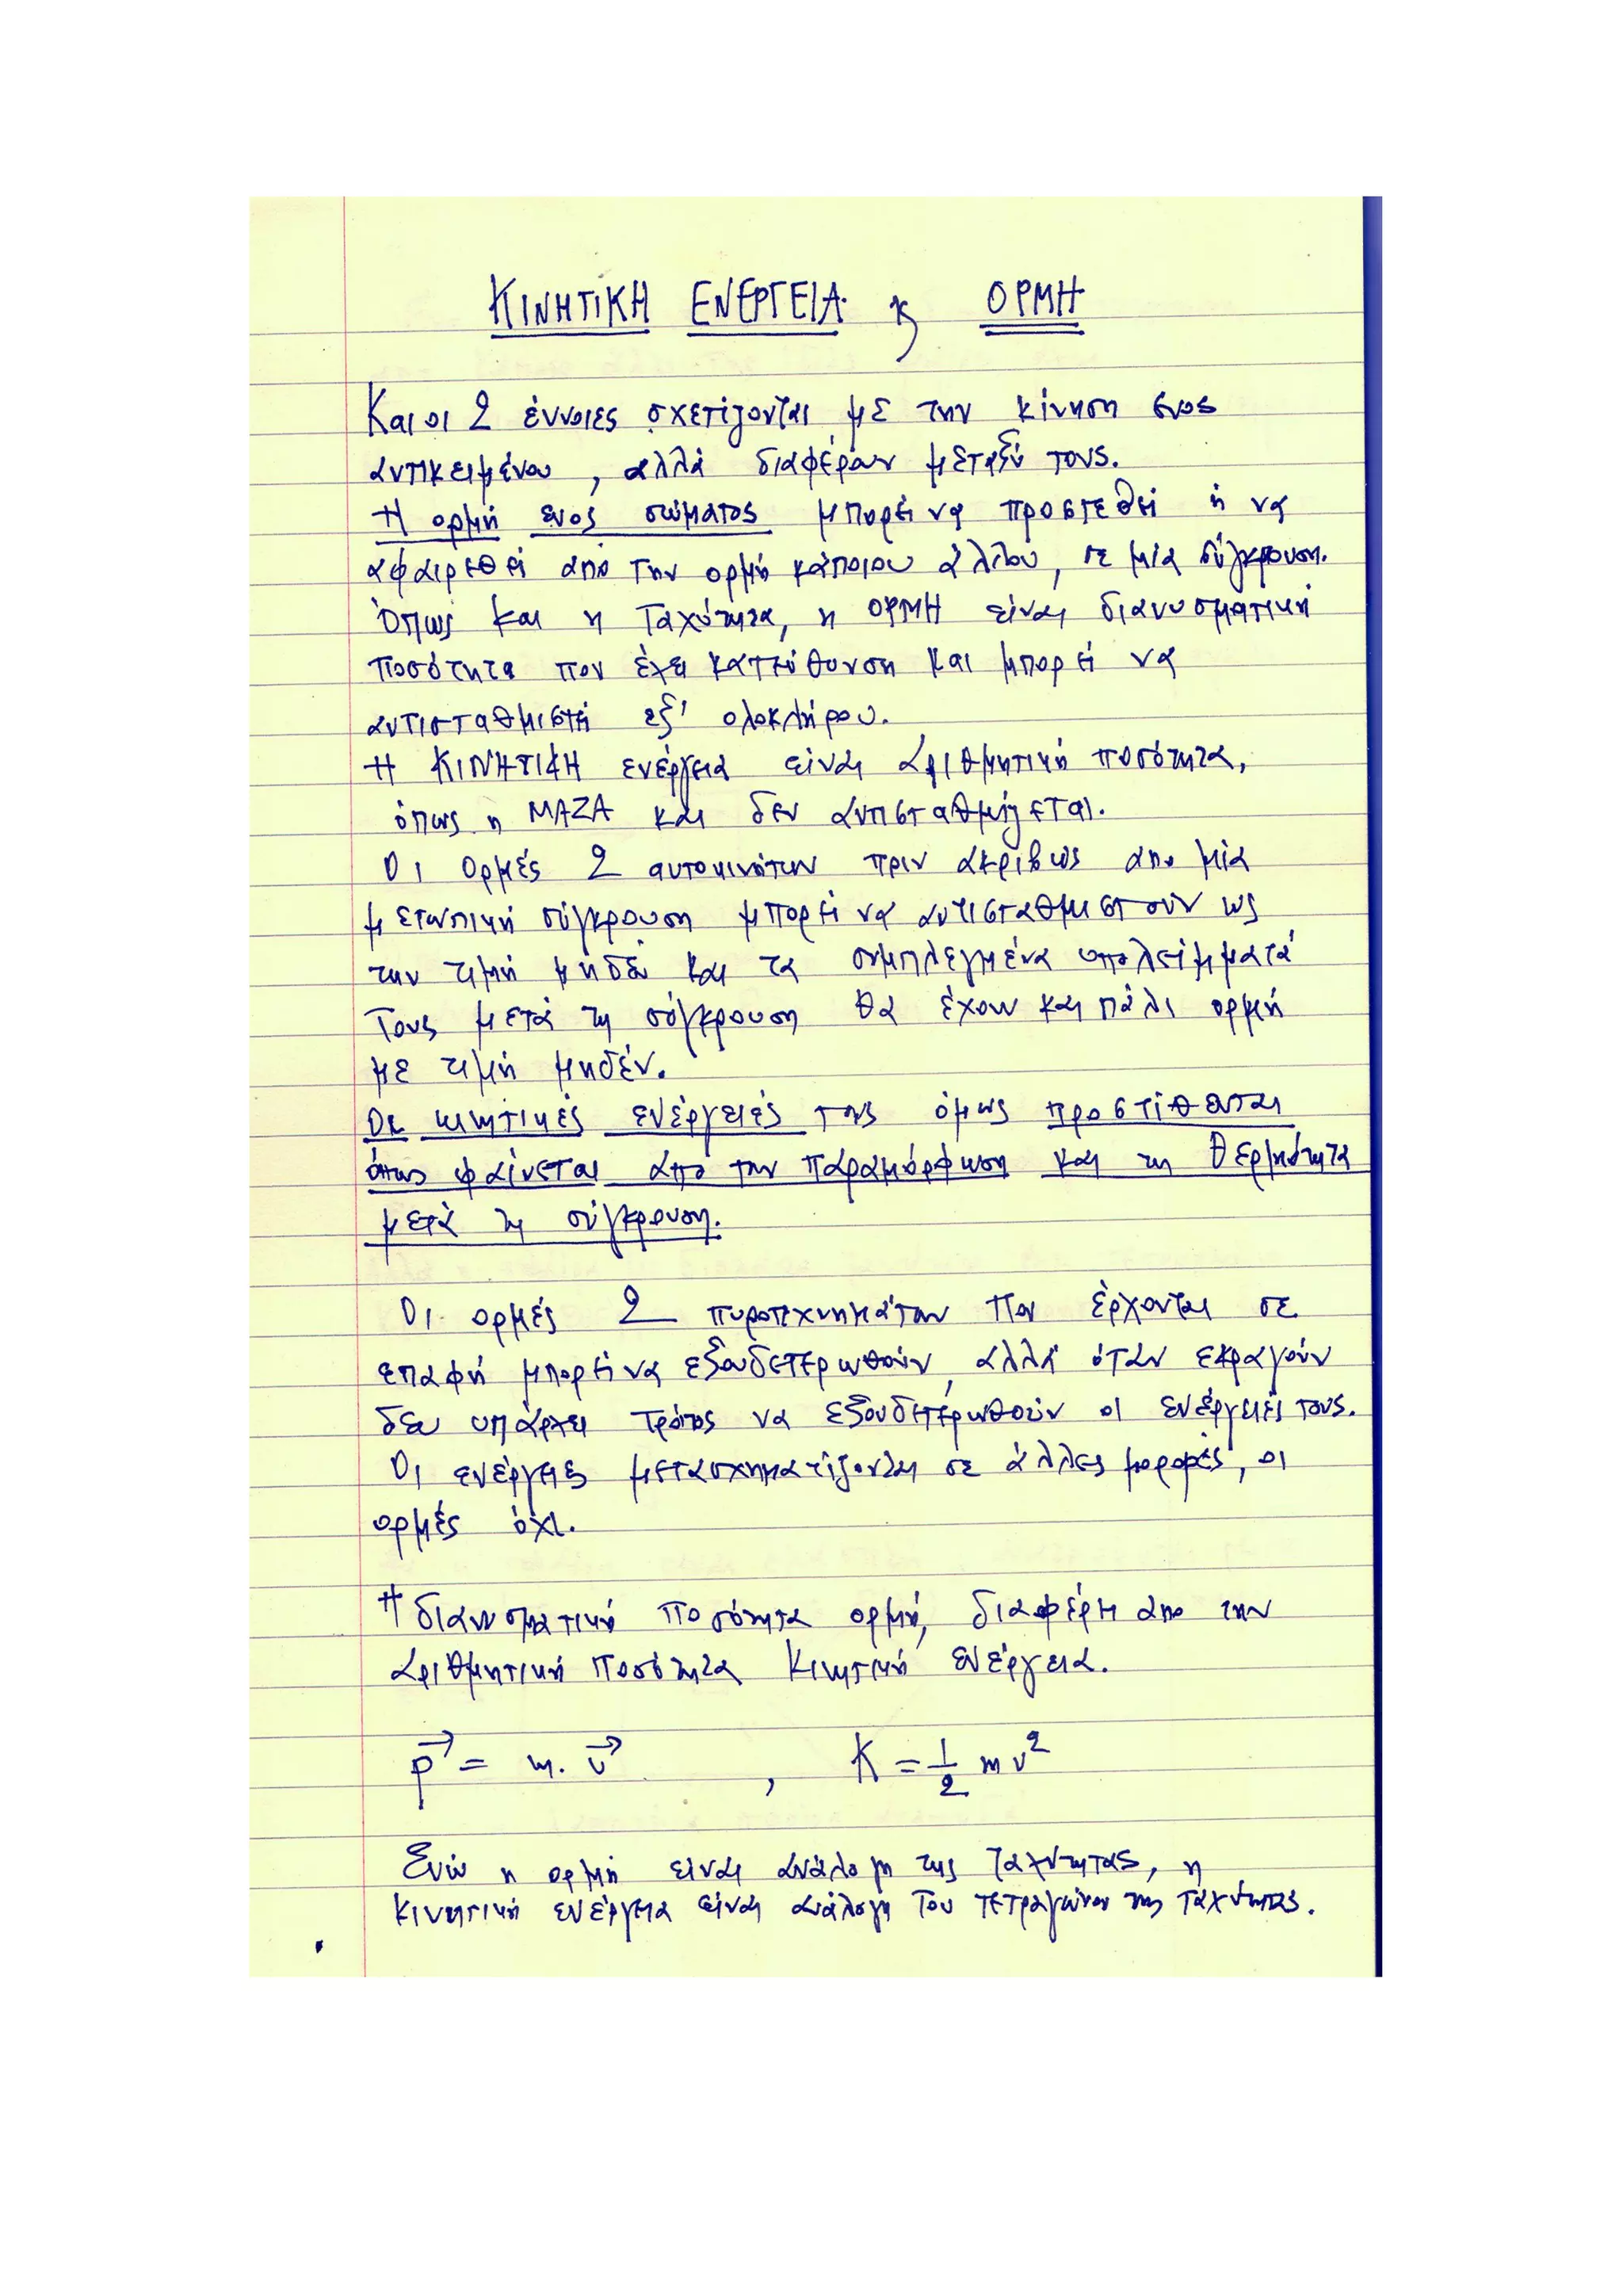 ΚΙΝΗΤΙΚΗ ΕΝΕΡΓΕΙΑ κ ΟΡΜΗ
Και οι 2 έννοιες σχετίζονται με την κίνηση ενος
αντικειμένου, αλλά διαφέρουν μεταξύ τους.
Η ορμή ενος σώματος μπορεί να προστεθεί ή να
αφαιρεθεί από την ορμή κάποιου άλλου, σε μία σύγκρουση.
Όπως και η Ταχύτητα, η ΟΡΜΗ είναι διανυσματική
ποσότητα που έχει κατεύθυνση και μπορεί να
αντισταθμιστεί εξ' ολοκλήρου.
Η ΚΙΝΗΤΙΚΗ ενέργεια είναι αριθμητική ποσότητα,
όπως η ΜΑΖΑ και δεν αντισταθμίζεται.
Οι Ορμές 2 αυτοκινήτων πριν ακριβώς απο μία
μετωπική σύγκρουση μπορεί να αντισταθμιστούν ως
την τιμή μηδέν και τα συμπλεγμένα υπολείμματά
Τους μετά τη σύγκρουση θα έχουν και πάλι ορμή
με τιμή μηδέν.
Οι κινητικές ενέργειές τους όμως προστίθενται
όπως φαίνεται από την παραμόρφωση και τη θερμότητα
μετά τη σύγκρουση.
Οι ορμές 2 πυροτεχνημάτων που έρχονται σε
επαφή μπορεί να εξουδετερωθούν, αλλά όταν εκραγούν
δεν υπάρχει τρόπος να εξουδετερωθούν οι ενέργειές τους.
Οι ενέργειες μετασχηματίζονται σε άλλες μορφές, οι
ορμές όχι.
Η διανυσματική ποσότητα ορμή, διαφέρει απο την
αριθμητική ποσότητα Κινητική ενέργεια.
p⃗ = m. v⃗ , K = 1/2 mv²
Ενώ η ορμή είναι ανάλογη της Ταχύτητας, η
κινητική ενέργεια είναι ανάλογη Του τετραγώνου της Ταχύτητας.